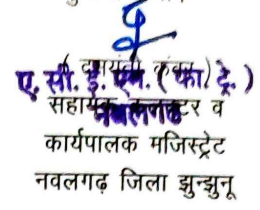 ए. सी. ई. एम. (फा. ट्रे.)
नवलगढ
सहायक कलक्टर व
कार्यपालक मजिस्ट्रेट
नवलगढ़ जिला झुन्झुनू